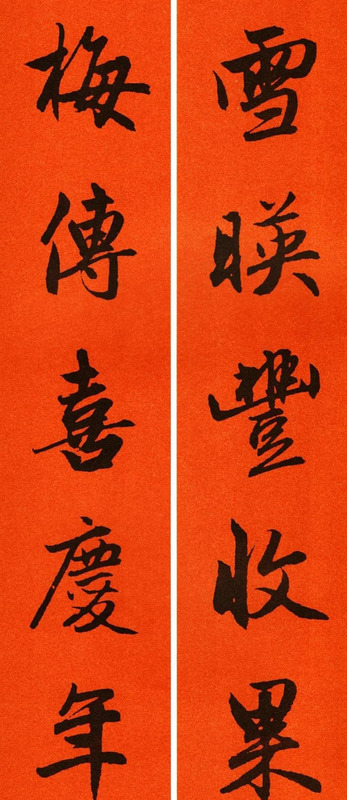 雪暎豐收果
梅傳喜慶年